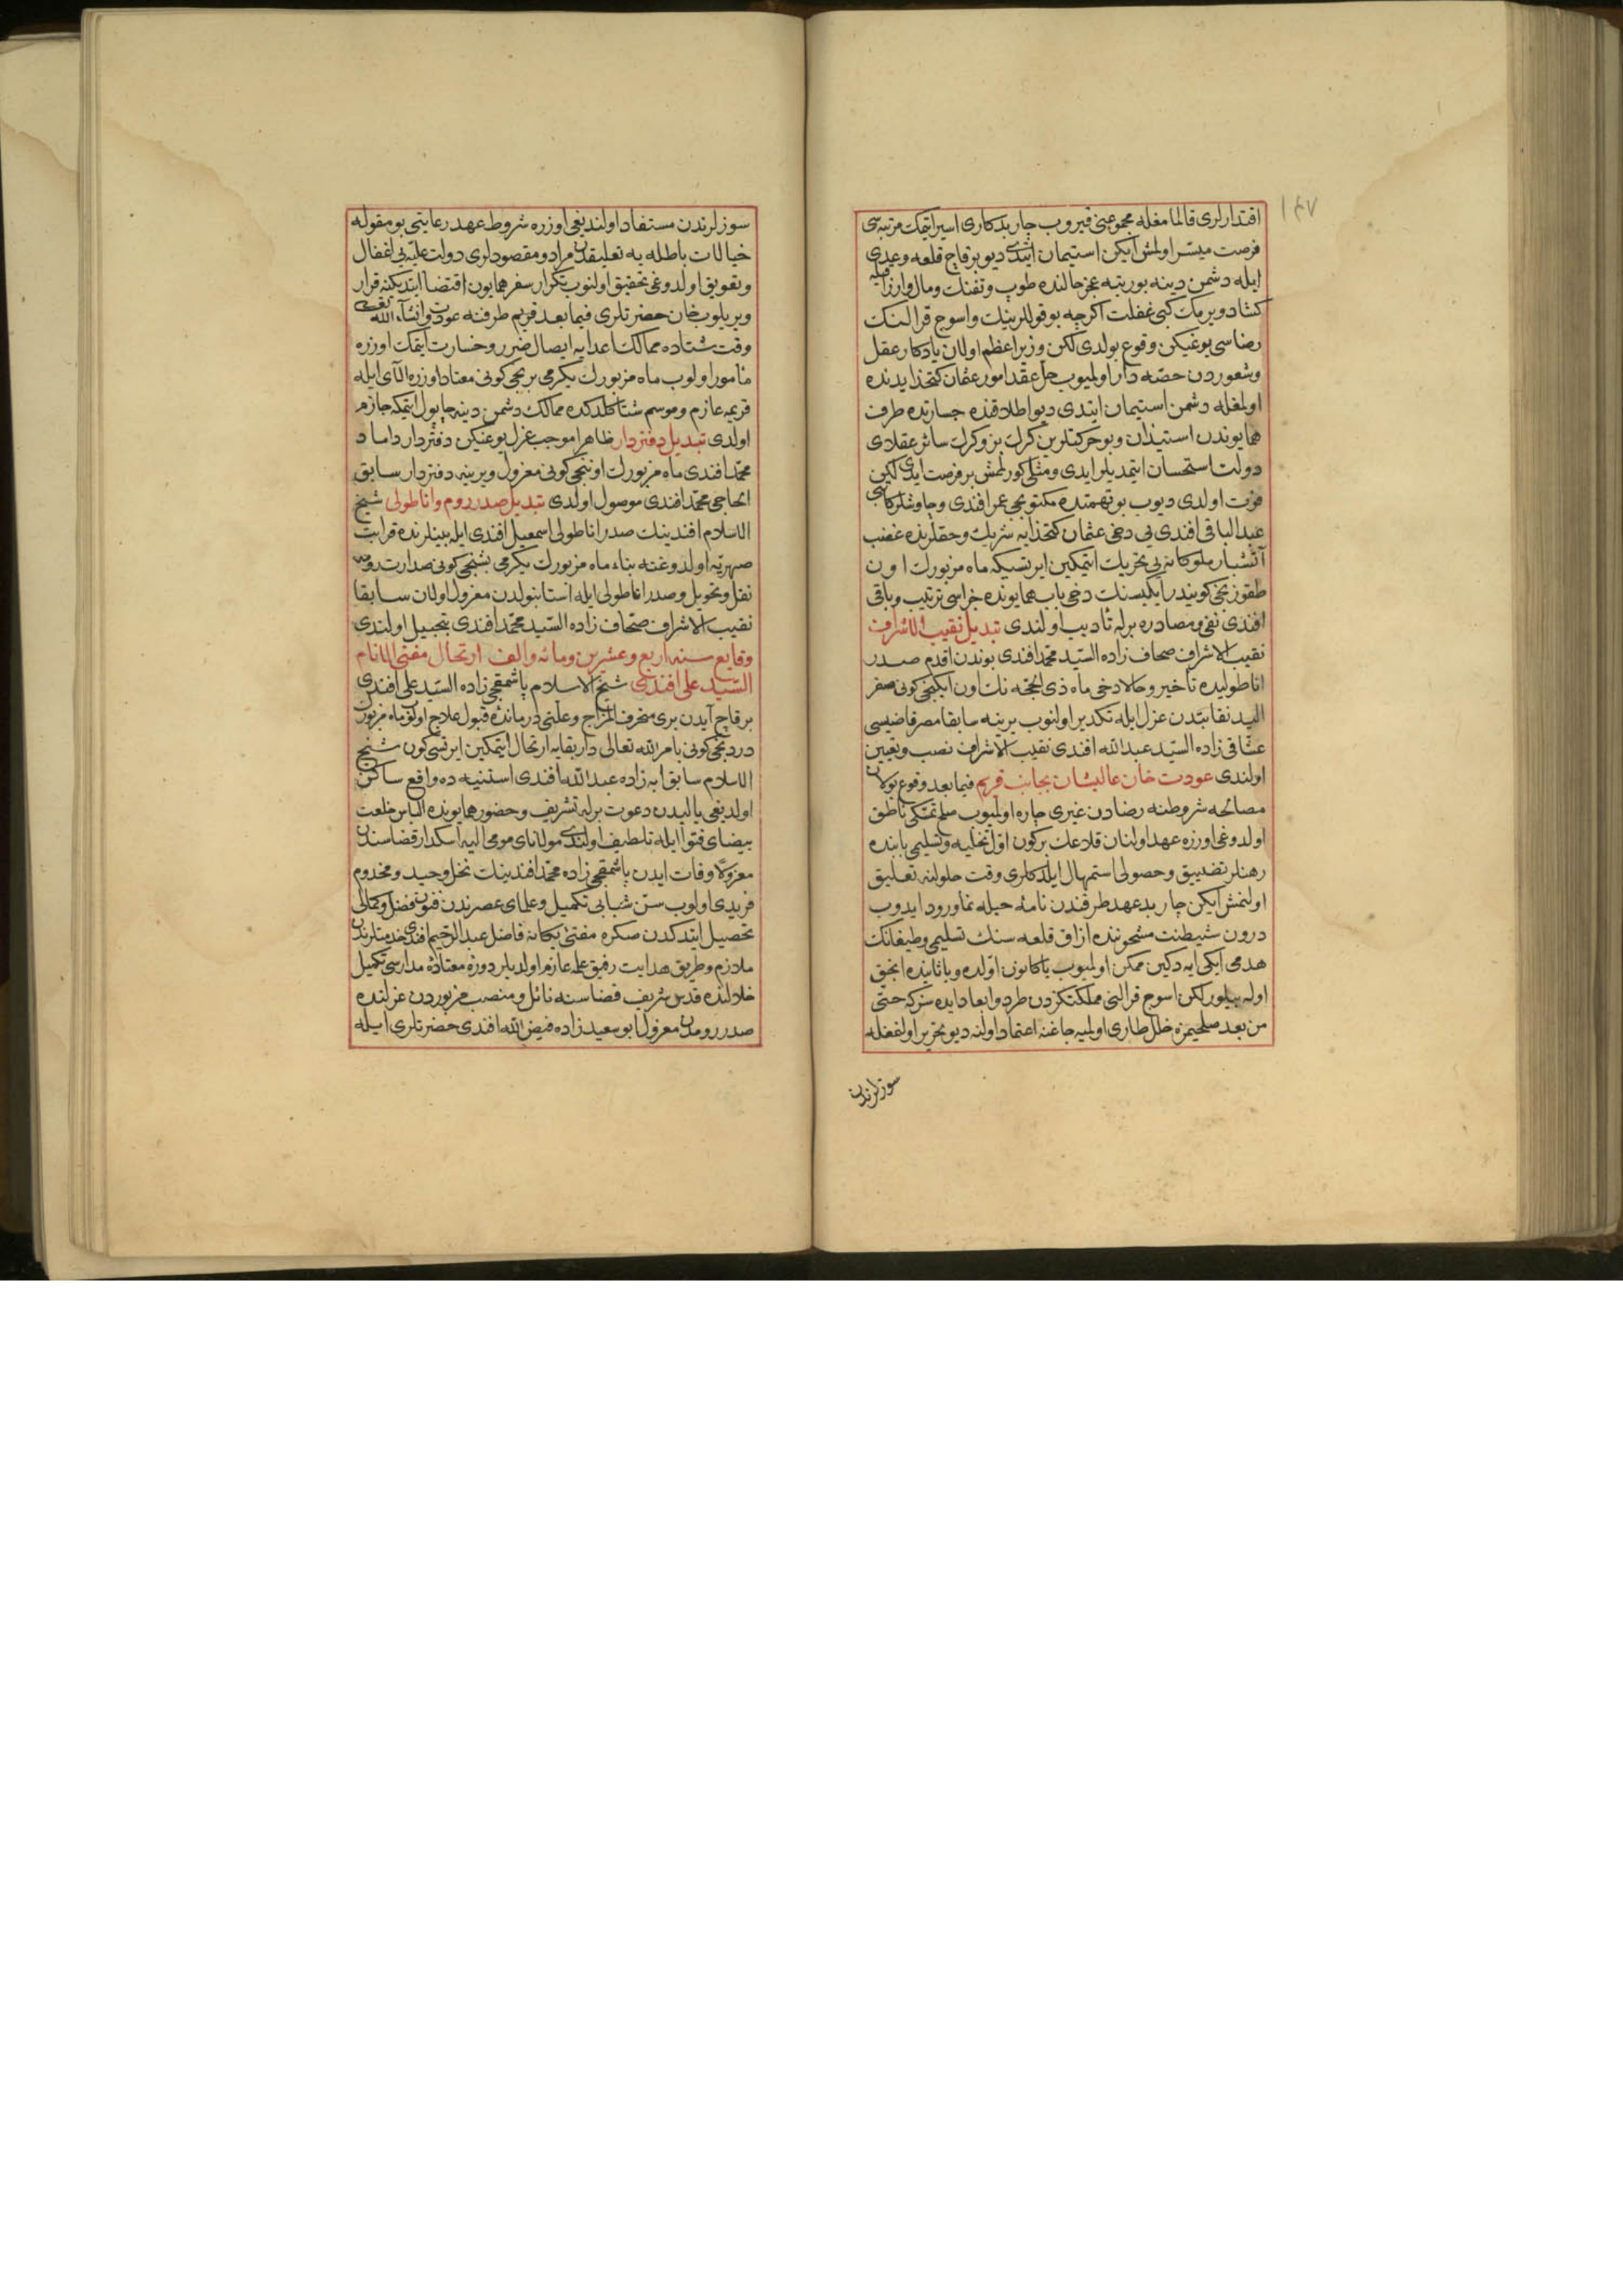 ١٤٧
اقتدارلری قالمامغله مجموعنی قیروب چار بدکاری اسیر ایتمك مرتبه‌سی
فرصت میسّر اولمش ایکن استیمان ایتدی دیو بر قاچ قلعه وعدی
ایله دشمن دینه بو رتبه عجز حالنده طوپ وتفنك ومال وارزاقیله
کشاد ویرمك کبی غفلت اکرچه بو قوللرینك واسوج قرالنك
رضاسی یوغیکن وقوع بولدی لکن وزیر اعظم اولان یادکار عقل
وشعوردن حصّه‌دار اولمیوب حل عقد امور عثمان کتخدا یدنده
اولمغله دشمن استیمان ایتدی دیو اطلاقنده جسارتده طرف
همایوندن استیذان وبو حرکتلرین کرك بز وکرك سائر عقلای
دولت استحسان ایتمدیلر ایدی ومثلی کورلمش بر فرصت ایدی لکن
فوت اولدی دیوب بو تهمتده مکتوبجی عمر افندی وچاوشلر کاتبی
عبد الباقی افندی یی دخی عثمان کتخدایه شریك وحقلرنده غضب
آتشبار ملوکانه‌یی تحریك ایتمکین ایرتسیکه ماه مزبورك اون
طقوزنجی کونیدر ایکیسنك دخی باب همایونده جزاسی ترتیب وباقی
افندی نفی ومصادره برله تأدیب اولندی تبدیل نقیب الاشراف
نقیب الاشراف صحاف زاده السّید محمّد افندی بوندن اقدم صدر
اناطولیده تأخیر وحالا دخی ماه ذی الحجّه نك اون ایکنجی کونی صفر
الید نقابتدن عزل ایله تکدیر اولنوب یرینه سابقا مصر قاضیسی
عشاقی زاده السّید عبد الله افندی نقیب الاشراف نصب وتعیین
اولندی عودت خان عالیشان بجانب قریم فیما بعد وقوع بولان
مصالحه شروطنه رضادن غیری چاره اولمیوب صلح تمسّکی ناطق
اولدوغی اوزره عهد اولنان قلاعك بر کون اوّل تخلیه وتسلیمی بابنده
رهنلر تضییق وحصولی استمهال ایلدکلری وقت حلولنه تعلیق
اولنمش ایکن چار بدعهد طرفندن نامهٔ حیله نما ورود ایدوب
درون شیطنت مشحوننده ازاق قلعه سنك تسلیمی وطیغانك
هدمی ایکی آیه دکین ممکن اولمیوب یا کانون اوّلده ویا ثانیده انجق
اوله بیلور لکن اسوج قرالنی مملکتکزدن طرد وابعاد ایده سز که حتّی
من بعد صلحیمزه خلل طاری اولمیه جاغنه اعتماد اولنه دیو تحریر اولنمغله
سوزلرندن
سوزلرندن مستفاد اولندیغی اوزره شروط عهد رعایتی بو مقوله
خیالات باطله یه تعلیقدن مراد ومقصودلری دولت علیّه یی اغفال
وتعویق اولدوغی تحقیق اولنوب تکرار سفر همایون اقتضا ایتدیکنه قرار
ویریلوب خان حضرتلری فیما بعد قریم طرفنه عودت وان شاء الله تعالی
وقت شتاده ممالك اعدایه ایصال ضرر وخسارت ایتمك اوزره
مأمور اولوب ماه مزبورك یکرمی برنجی کونی معتاد اوزره آلای ایله
قریمه عازم وموسم شتا کلدکده ممالك دشمن دینه چاپول ایتمکه جازم
اولدی تبدیل دفتردار ظاهرا موجب عزل یوغیکن دفتردار داماد
محمّد افندی ماه مزبورك اوننجی کونی معزول ویرینه دفتردار سابق
الحاجی محمّد افندی موصول اولدی تبدیل صدر روم واناطولی شیخ
الاسلام افندینك صدر اناطولی اسمعیل افندی ایله بینلرنده قرابت
صهریّه اولدوغنه بناء ماه مزبورك یکرمی بشنجی کونی صدارت رومه
نقل وتحویل وصدر اناطولی ایله استانبولدن معزول اولان سابقا
نقیب الاشراف صحّاف زاده السّید محمّد افندی تبجیل اولندی
وقایع سنه اربع وعشرین ومائه والف ارتحال مفتی الانام
السّید علی افندی شیخ الاسلام پاشمقجی زاده السّید علی افندی
بر قاچ آیدن بری منحرف المزاج وعلّتی درمانده قبول علاج اولوب ماه مزبورك
دردنجی کونی بامر الله تعالی دار بقایه ارتحال ایتمکین ایرتسی کون شیخ
الاسلام سابق ابه زاده عبد الله افندی استنیه ده واقع ساکن
اولدیغی یالیدن دعوت برله تشریف وحضور همایونده الباس خلعت
بیضای فتوا ایله تلطیف اولندی مولانای مومی الیه اسکدار قضاسندن
معزولا وفات ایدن پاشمقجی زاده محمّد افندینك نخل وحید ومخدوم
فریدی اولوب سنّ شبابی تکمیل وعلمای عصرندن فنون فضل وکمالی
تحصیل ایتدکدن صکره مفتئ یکانه فاضل عبد الرّحیم افندی خدمتلرندن
ملازم وطریق هدایت رفیق علمه عازم اولدیلر دورهٔ معتاده مدارسی تکمیل
خلالنده قدس شریف قضاسنه نائل ومنصب مزبوردن عزلنده
صدر رومدن معزول ابو سعید زاده فیض الله افندی حضرتلری ایله